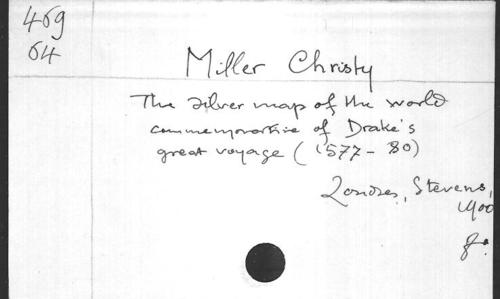 469
64
Miller Christy
The silver map of the world
commemorative of Drake's
great voyage (1577-80)
Londres, Stevens,
1900
8°